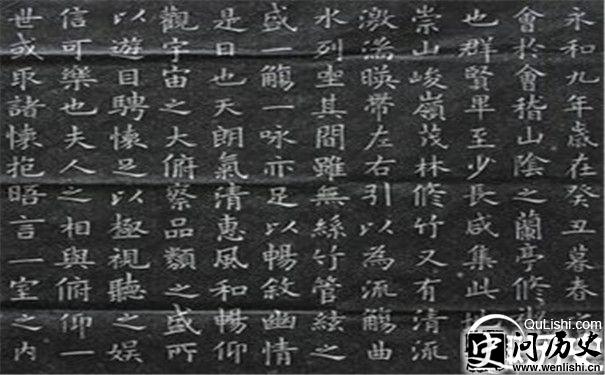 永和九年歲在癸丑暮春
會於會稽山陰之蘭亭修
也群賢畢至少長咸集此
崇山峻嶺茂林修竹又有清流
激湍暎帶左右引以為流觴曲
水列坐其間雖無絲竹管絃之
盛一觴一咏亦足以暢敘幽情
是日也天朗氣清惠風和暢仰
觀宇宙之大俯察品類之盛所
以遊目騁懷足以極視聽之娛
信可樂也夫人之相與俯仰一
世或取諸懷抱晤言一室之內
QuLishi.com
问历史
www.wenlishi.cn